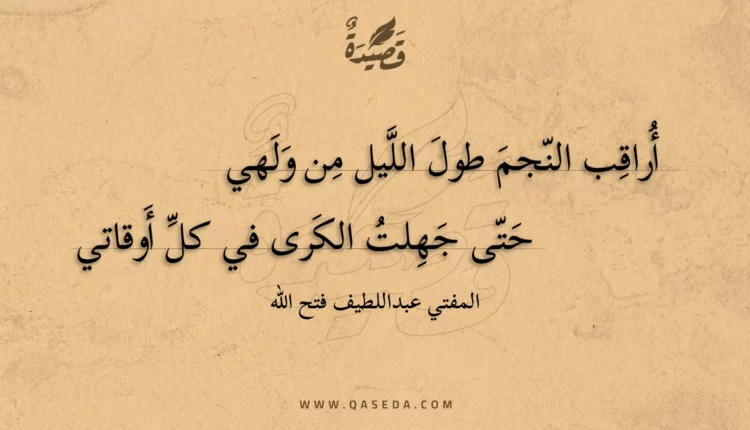 قَصِيدَةٌ
أُراقِب النّجمَ طولَ اللَّيل مِن وَلَهي
حَتّى جَهِلتُ الكَرى في كلِّ أَوقاتي
المفتي عبداللطيف فتح الله
WWW.QASEDA.COM